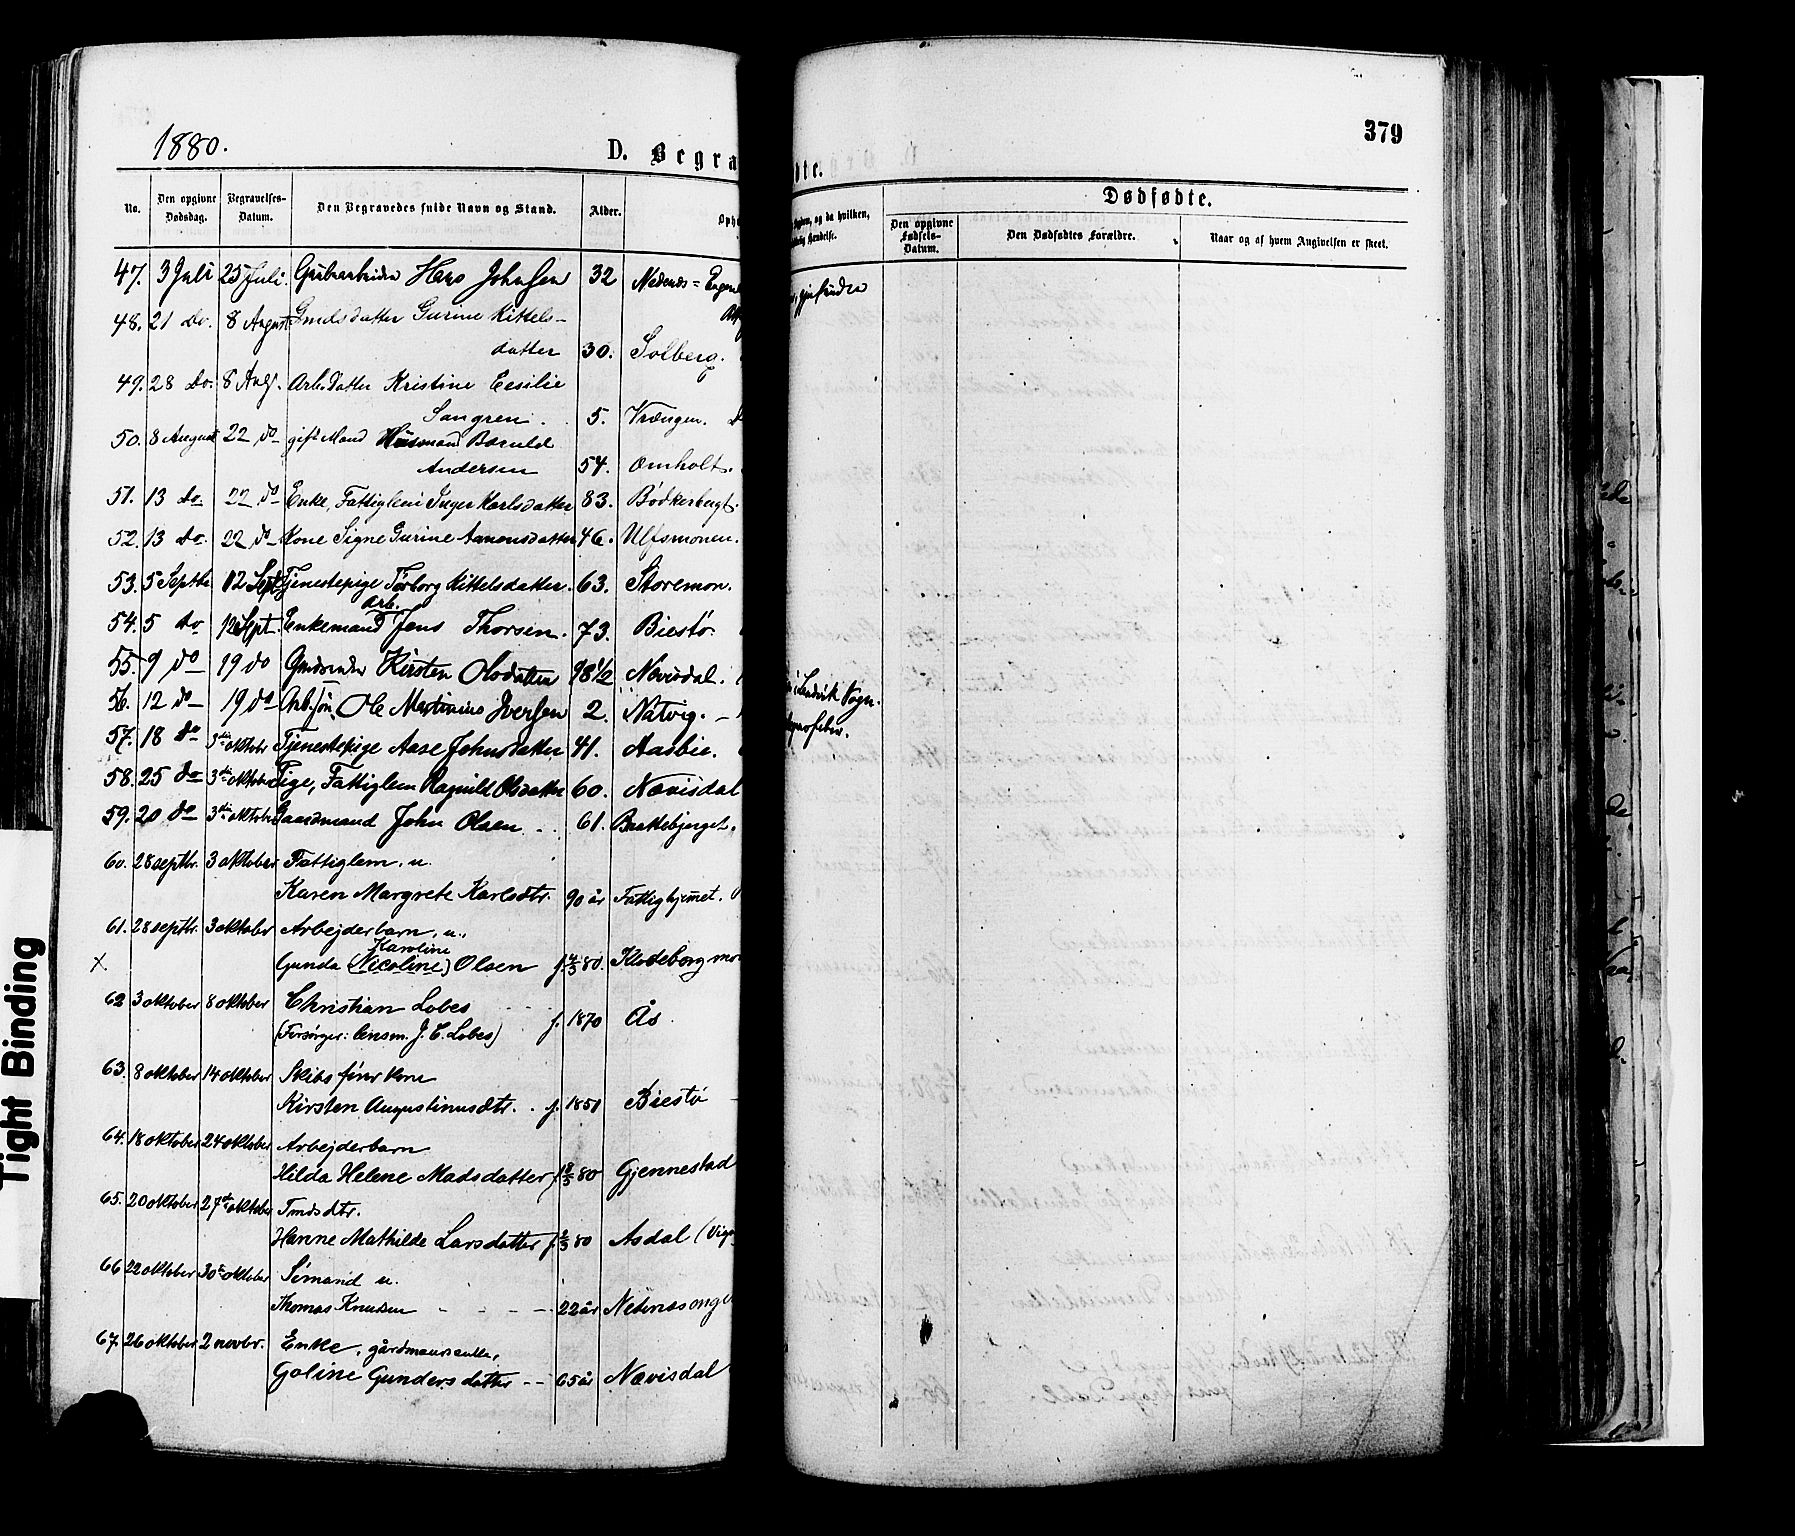 1880.
D. Begra
No. Den opgivne Dødsdag. Begravelses-Datum. Den Begravedes fulde Navn og Stand. Alder. Opho
47. 3 Juli 25 Juli. Hans Johnsen 32 Nedenæs =
48. 21 Do. 8 August Gmdsdatter Gurine Kittels-
datter 30. Solberg.
49. 28 Do. 8 Augs. Arb. Datter Kristine Cesilie
Sangren. 5. Vrængen.
50. 8 August 22 do gift Mand Husmand Baruld
Andersen 54. Omholt.
51. 13 do. 22 do Enke, Fattiglem Inger Karlsdatter 83. Bødkerbugt.
52. 13 do. 22 do Kone Signe Gurine Aanonsdatter 46. Ulfsmonen.
53. 5 Septbr 12 Sept. Tjenestepige Torborg Kittelsdatter. 63. Storemon.
Arb.
54. 5 do 12 Sept. Enkemand Jens Thorsen. 73. Biestø.
55. 9 do 19 do Kirsten Olsdatter 98 1/2 Nævisdal.
56. 12 do 19 do Arb. søn. Ole Martinius Iversen 2. Natvig. –
57. 18 do 3die oktobr Tjenestepige Aase Johnsdatter 41. Aasbie.
58. 25 do 3die oktobr Pige, Fattiglem Ragnild Olsdatter 60. Nævisdal
59. 20 do 3die oktober Gaardmand John Olsen 61. Bakkebjerget.
60. 28 septbr. 3 oktober Fattiglem, u.
Karen Margrete Karlsdtr. 90 år Fattighjemet.
61. 28 septbr. 3 oktober Arbejderbarn, u.
Karoline
x Gunda (Nicoline) Olsen f. 4/5 80. Klodeborg mo
62 3 oktober 8 oktober Christian Lobes
(Forsørger: lensm. J. C. Lobes) f. 1870 Ås
63. 8 oktober 14 oktober Skibsførerkone
Kirsten Augustinusdtr. f. 1851 Biestø
64. 18 oktober 24 oktober Arbejderbarn
Hilda Helene Madsdatter f 8/5 80 Gjennestad
65. 20 oktober 27de oktober Gmdsdtr.
Hanne Mathilde Larsdatter f. 2/3 80 Asdal
66 22 oktober 30te oktober Sømand u.
Thomas Knudsen 22 år Nedenæs
67. 26 oktober 2 novbr. Enke, gårdmandsenke,
Goline Gundersdatter -- 65 år Nævisdal
Tight Binding
379
dte.
Dødsfødte.
og da hvilken,
Hændelse.
Den opgivne Fødsels-Datum. Den Dødfødtes Forældre. Naar og af hvem Angivelsen er skeet.
i Landvik Sogn.